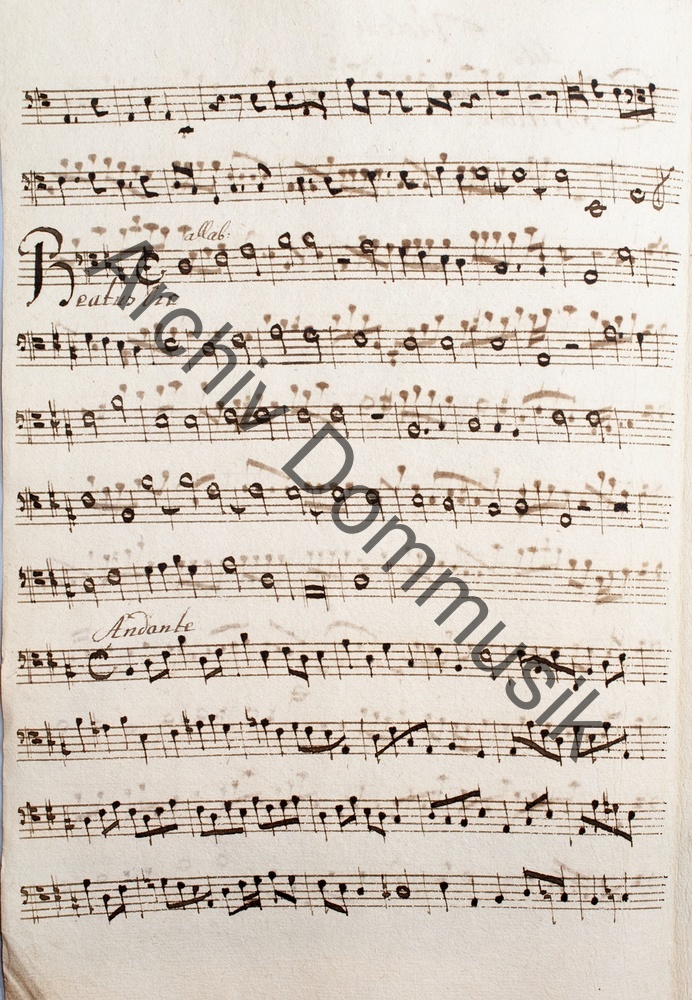 allab:
Beatus vir
Andante
Archiv Dommusik